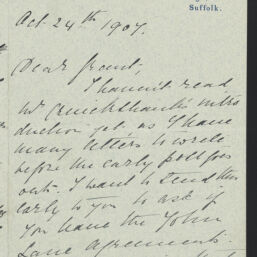 Suffolk.
Oct. 24th 1907.
Dear Grant,
I haven't read
Mr Cruickshank's intro
duction yet as I have
many letters to write
before the early post goes
out. I want to send this
early to you to ask if
you have the John
Lane Agreement.